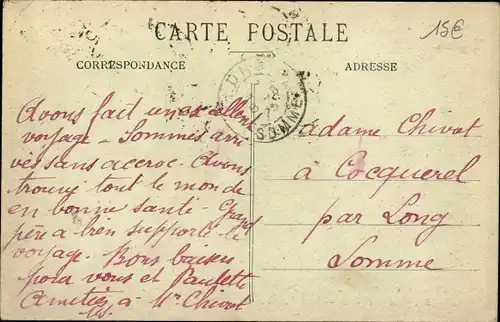 CARTE POSTALE
15€
CORRESPONDANCE
ADRESSE
SOMME
Avons fait un excellent
voyage - Sommes arri
vés sans accroc - Avons
trouvé tout le monde
en bonne santé - Grand
père a bien supporté le
voyage - Bons baisers
pour vous et Paulette
Amitiés à Mr Chivot
Madame Chivot
à Cocquerel
par Long
Somme